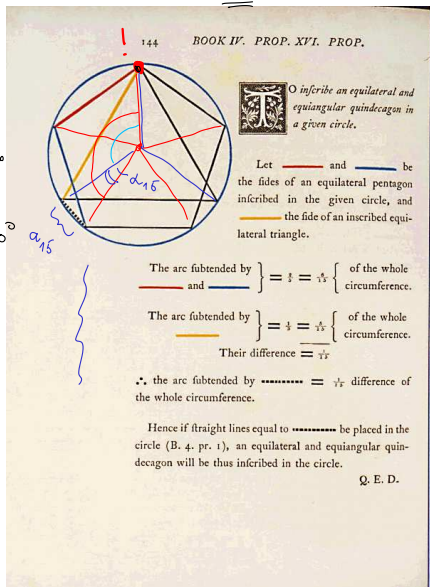 !
144 BOOK IV. PROP. XVI. PROP.
TO inſcribe an equilateral and
equiangular quindecagon in
a given circle.
α15
a15
Let and be
the ſides of an equilateral pentagon
inſcribed in the given circle, and
the ſide of an inſcribed equi-
lateral triangle.
The arc ſubtended by } = 2/5 = 6/15 { of the whole
and circumference.
The arc ſubtended by } = 1/3 = 5/15 { of the whole
circumference.
Their difference = 1/15
∴ the arc ſubtended by = 1/15 difference of
the whole circumference.
Hence if ſtraight lines equal to be placed in the
circle (B. 4. pr. 1), an equilateral and equiangular quin-
decagon will be thus inſcribed in the circle.
Q. E. D.